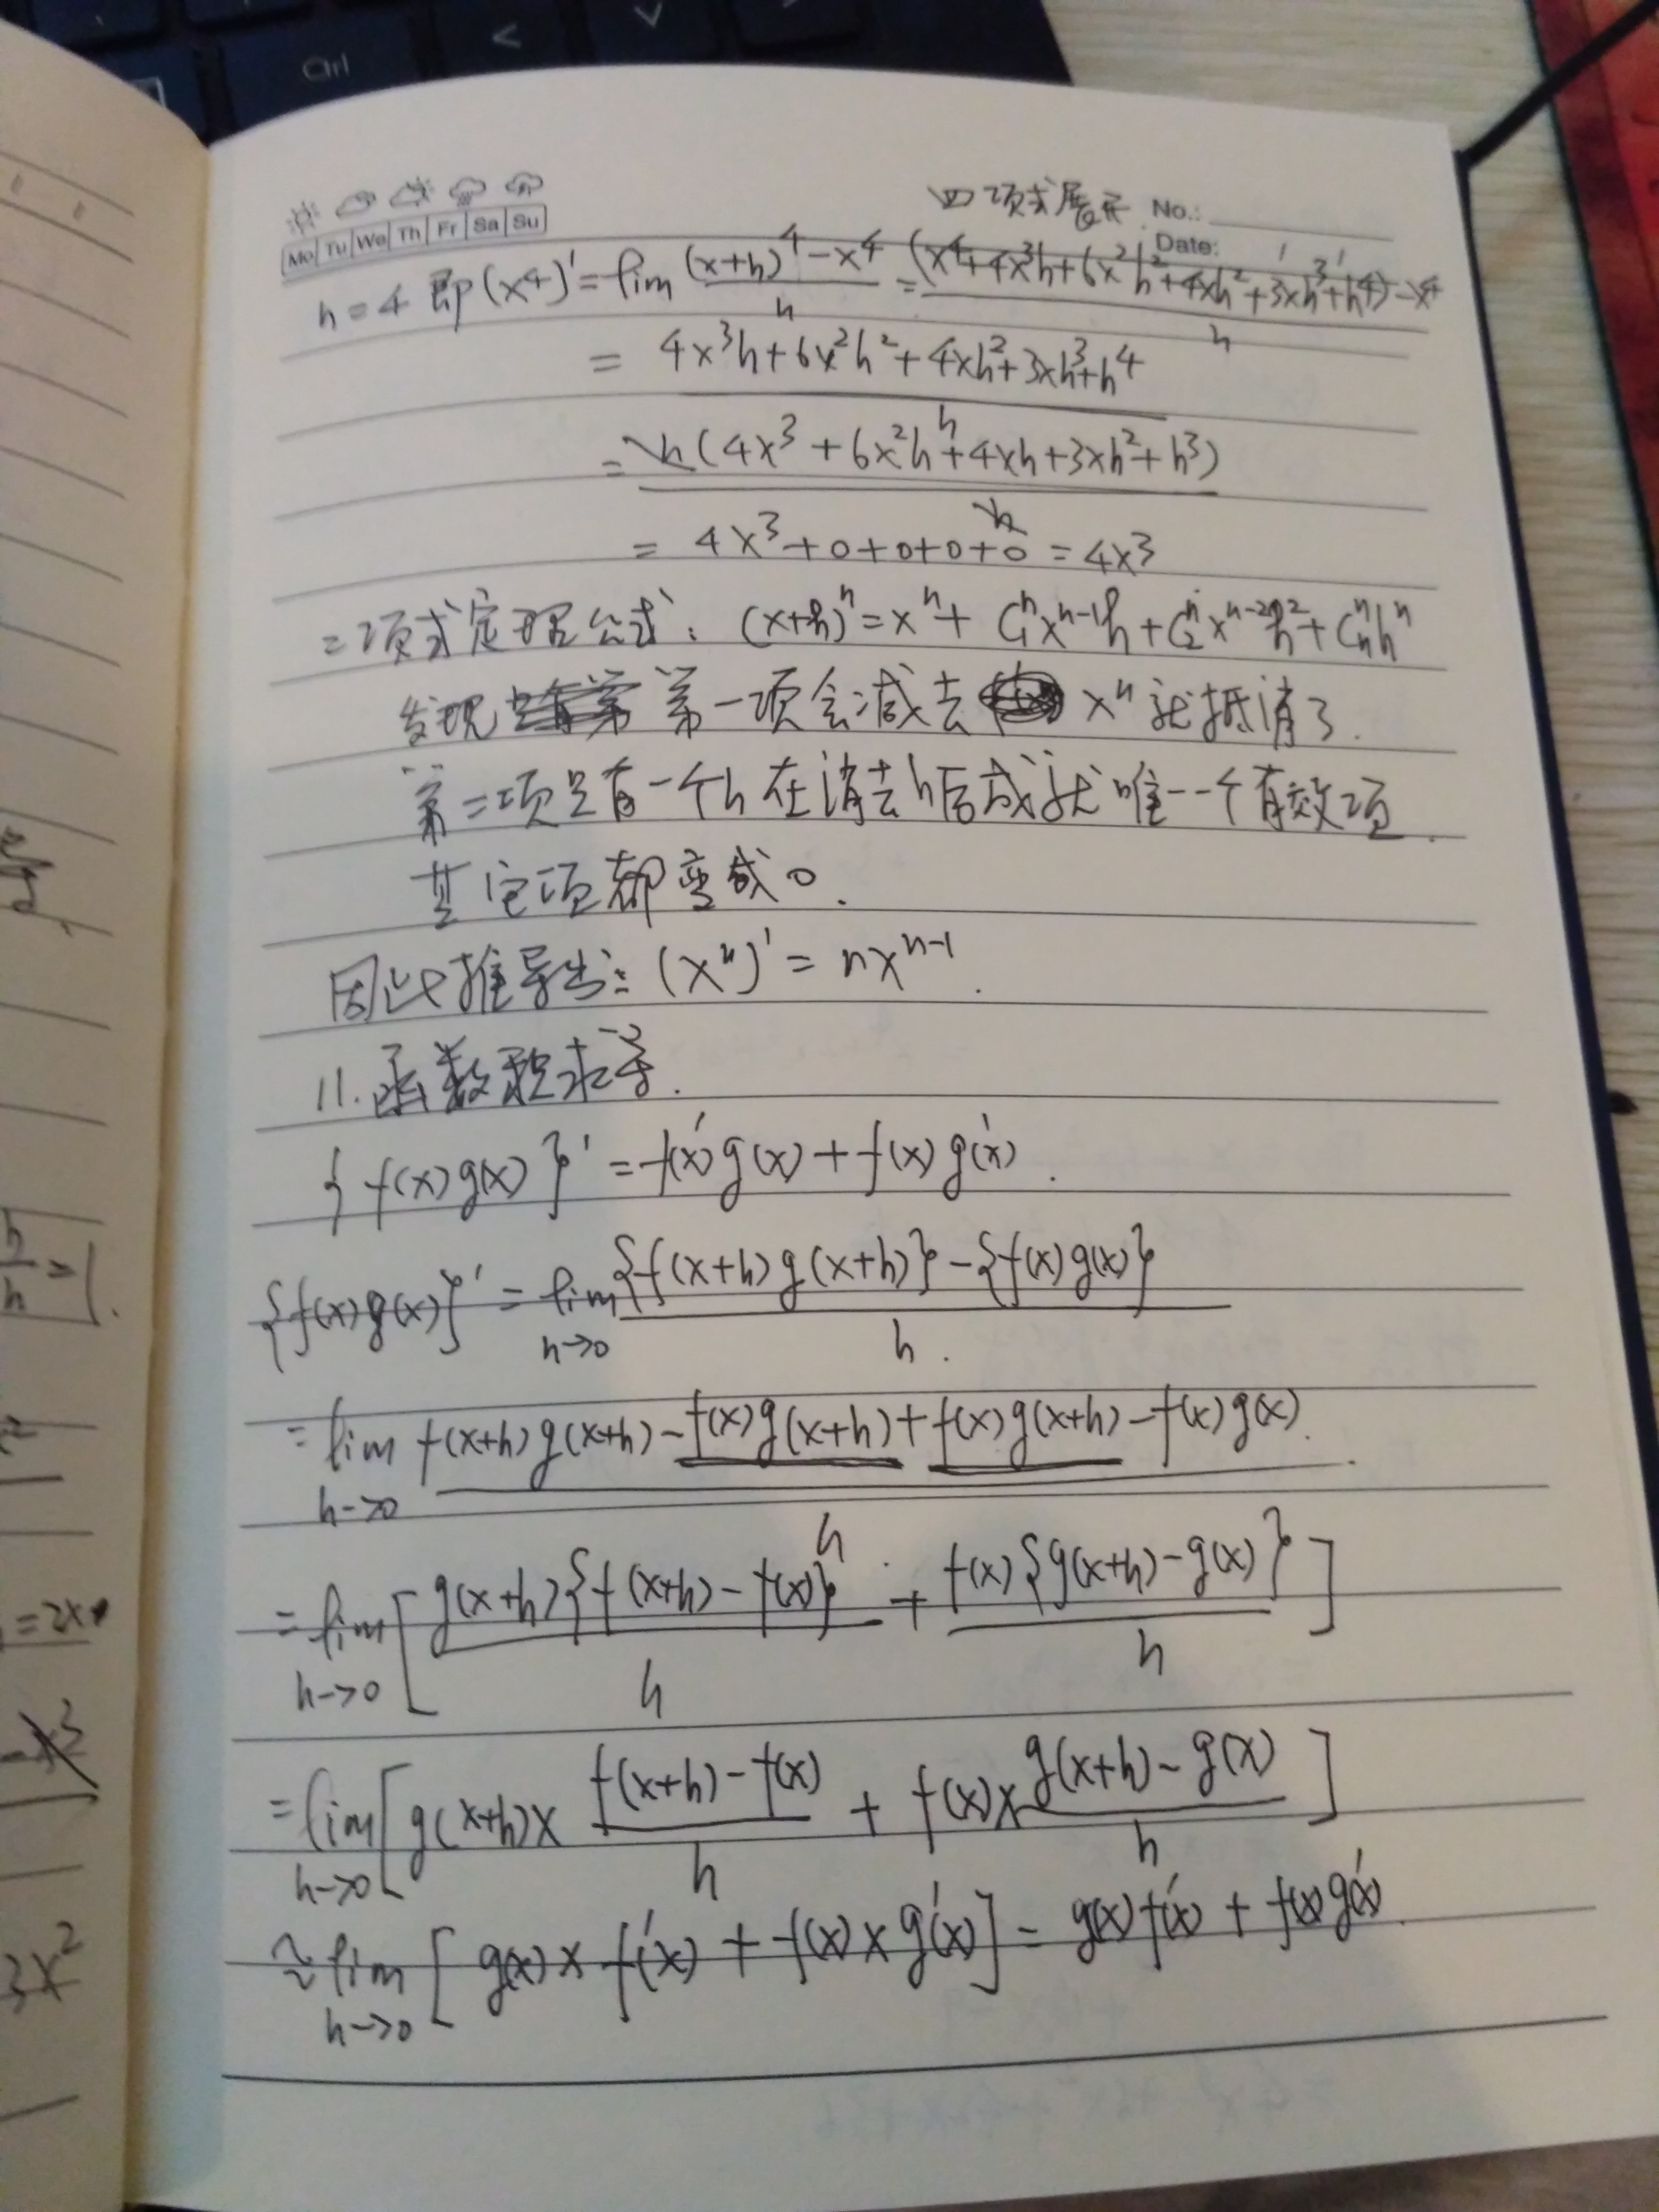 Ctrl
四项式展开 No.:
Mo Tu We Th Fr Sa Su
Date:
n=4 即(x⁴)'=lim (x+h)⁴-x⁴ / h = (x⁴+4x³h+6x²h²+4xh²+3xh³+h⁴)-x⁴ / h
= 4x³h+6x²h²+4xh²+3xh³+h⁴ / h
= h(4x³+6x²h+4xh+3xh²+h³) / h
= 4x³+0+0+0+0=4x³
二项式定理公式: (x+h)ⁿ=xⁿ+C₁ⁿxⁿ⁻¹h+C₂ⁿxⁿ⁻²h²+Cₙⁿhⁿ
发现 第一项会减去 xⁿ就抵消了.
第二项只有一个h在消去h后成就唯一一个有效项.
其它项都变成0.
因此推导出: (xⁿ)'=nxⁿ⁻¹.
11.函数积求导.
{f(x)g(x)}'=f'(x)g(x)+f(x)g'(x).
{f(x)g(x)}'=lim h→0 {f(x+h)g(x+h)}-{f(x)g(x)} / h.
=lim h→0 f(x+h)g(x+h)-f(x)g(x+h)+f(x)g(x+h)-f(x)g(x) / h.
=lim h→0 [g(x+h){f(x+h)-f(x)} / h + f(x){g(x+h)-g(x)} / h]
=lim h→0 [g(x+h)× f(x+h)-f(x) / h + f(x)× g(x+h)-g(x) / h]
≈lim h→0 [g(x)×f'(x)+f(x)×g'(x)]=g(x)f'(x)+f(x)g'(x)
h/h=1.
=2x
3x²